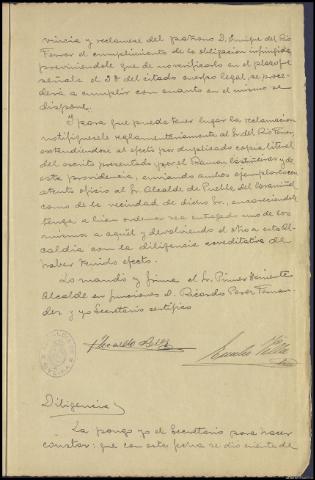 vincia y reclamese del patrono D. Enrique del Rio
Ferrer el cumplimiento de la obligación infringida
previniendole que de no verificarlo en el plazo que
señala el 28 del citado cuerpo legal, se proce-
derá a cumplir con cuanto en el mismo se
dispone.
Y para que pueda tener lugar la reclamación
notifiquesele reglamentariamente al Sr. del Rio Ferrer,
extendiendose al efecto por duplicado copia literal
del escrito presentado por el Ramon y de
esta providencia, enviando ambos ejemplares con
atento oficio al Sr. Alcalde de Puebla del Caramiñal
como de la vecindad de dicho Sr., encareciendole
tenga a bien ordenar sea entregado uno de los
mismos a aquél y devolviendo el otro a esta Al-
caldia con la diligencia acreditativa de
haber tenido efecto.
Lo mandó y firma el Sr. Primer Teniente
Alcalde en funciones D. Ricardo Perez Fernan-
dez y yo Secretario certifico
Ricardo Perez
Diligencia
La pongo yo el Secretario para hacer
constar: que con esta fecha se dió cuenta de